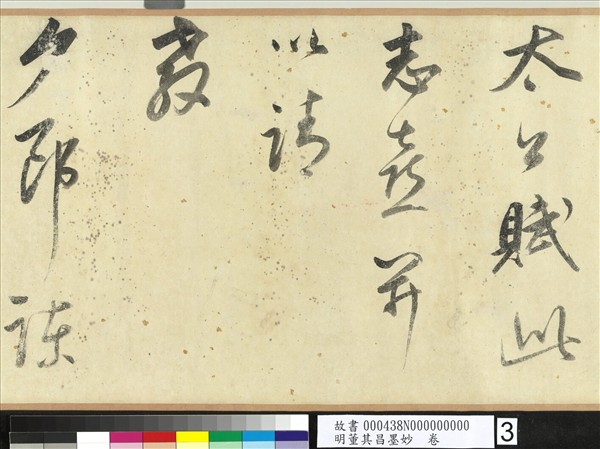 太公賦此
志喜并
以請
教
夕郎諫
故書 000438N000000000
明董其昌墨妙　卷
3